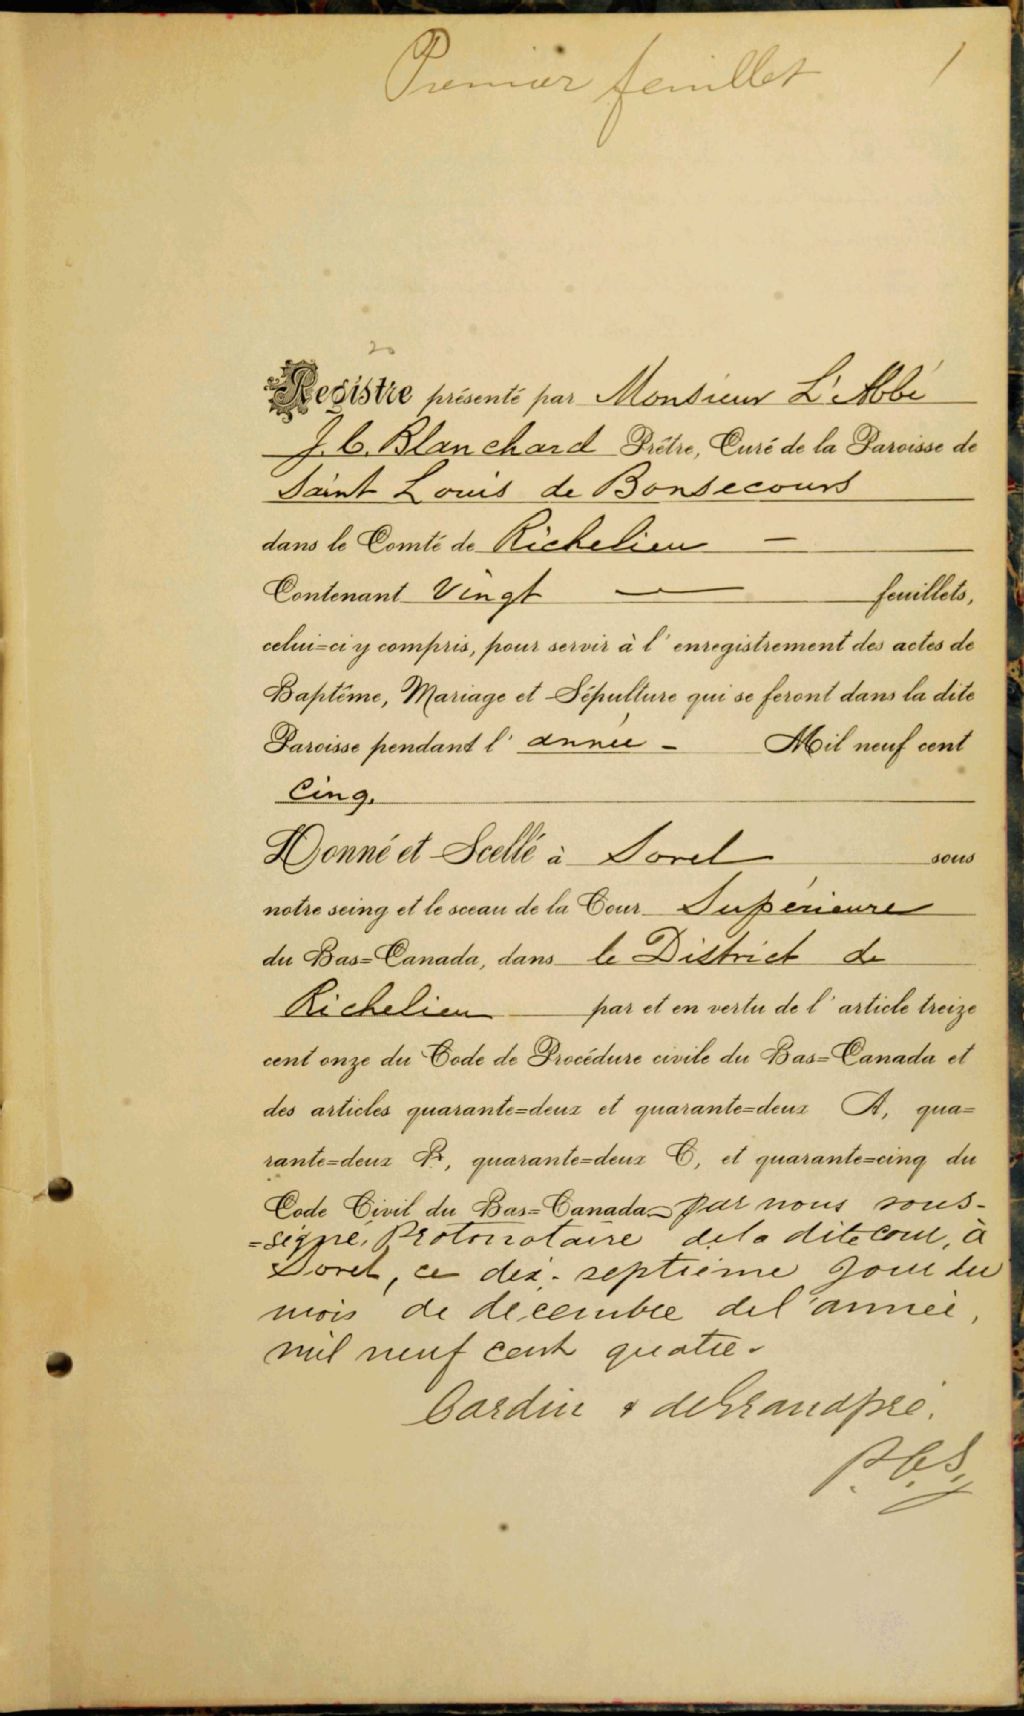 Premier feuillet 1
Registre présenté par Monsieur L'Abbé
J. C. Blanchard Prêtre, Curé de la Paroisse de
Saint Louis de Bonsecours
dans le Comté de Richelieu —
Contenant Vingt — feuillets,
celui=ci y compris, pour servir à l'enregistrement des actes de
Baptême, Mariage et Sépulture qui se feront dans la dite
Paroisse pendant l'année - Mil neuf cent
Cinq.
Donné et Scellé à Sorel sous
notre seing et le sceau de la Cour Supérieure
du Bas=Canada, dans le District de
Richelieu par et en vertu de l'article treize
cent onze du Code de Procédure civile du Bas=Canada et
des articles quarante=deux et quarante=deux A, qua=
rante=deux B, quarante=deux C, et quarante=cinq du
Code Civil du Bas=Canada - par nous sous-
=signé, Protonotaire de la dite cour, à
Sorel, ce dix-septième jour du
mois de décembre de l'année,
mil neuf cent quatre.
Cardin & deGrandpré.
P.C.S.